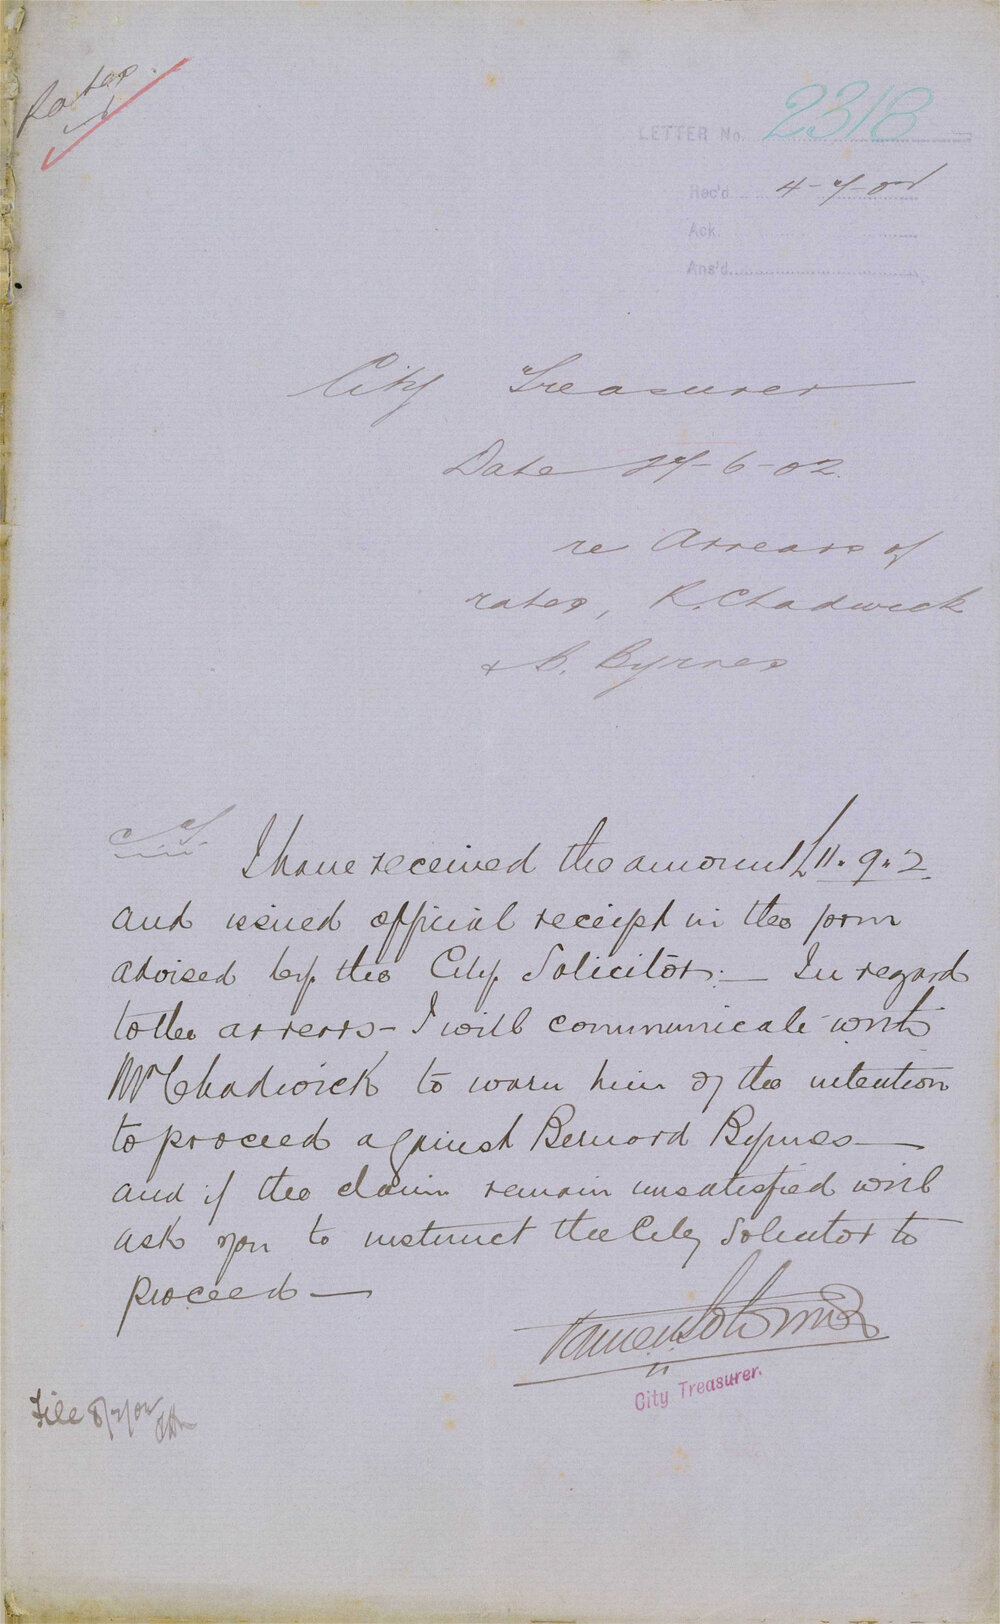 Rates.
LETTER No. 2318
Rec'd 4-7-02
Ack.
Ans'd.
City Treasurer
Date 27-6-02.
re Arrears of
rates, R. Chadwick
& B. Byrnes
I have received the amount £11.9.2.
and issued official receipt in the form
advised by the City Solicitor. — In regard
to the arrers - I will communicate with
Mr Chadwick to warn him of the intention
to proceed against Bernard Byrnes —
and if the claim remain unsatisfied will
ask you to instruct the City Solicitor to
proceed —
City Treasurer.
File 8/7/02